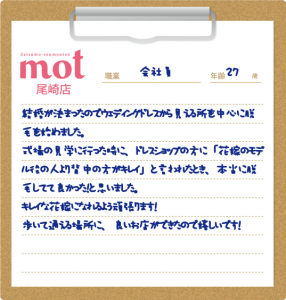 datsumo-senmonten
mot
尾崎店
職業 会社員 年齢 27 歳
結婚が決まったのでウェディングドレスから見える所を中心に脱
毛を始めました。
式場の見学に行った時に、ドレスショップの方に「花嫁のモデ
ル役の人より背中の方がキレイ」と言われたとき、本当に脱
毛してて良かった!と思いました。
キレイな花嫁になれるよう頑張ります!
歩いて通える場所に、良いお店ができたので嬉しいです!